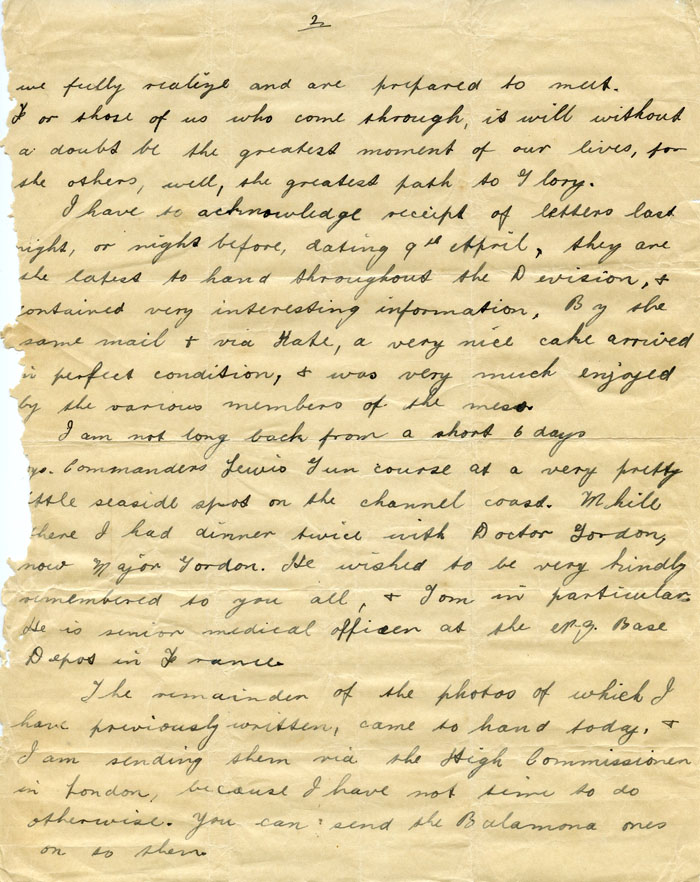 2
we fully realize and are prepared to meet.
For those of us who come through, it will without
a doubt be the greatest moment of our lives, for
the others, well, the greatest path to Glory.
I have to acknowledge receipt of letters last
night, or night before, dating 9th April, they are
the latest to hand throughout the Devision, &
contained very interesting information, By the
same mail & via Kate, a very nice cake arrived
in perfect condition, & was very much enjoyed
by the various members of the mess.
I am not long back from a short 6 days
Commanders Lewis Gun course at a very pretty
little seaside spot on the channel coast. While
there I had dinner twice with Doctor Gordon,
now Major Gordon. He wished to be very kindly
remembered to you all, & Tom in particular.
He is senior medical officer at the N.Z. Base
Depot in France.
The remainder of the photos of which I
have previously written, came to hand today, &
I am sending them via the High Commissioner
in London, because I have not time to do
otherwise. You can send the Balamona ones
on to them